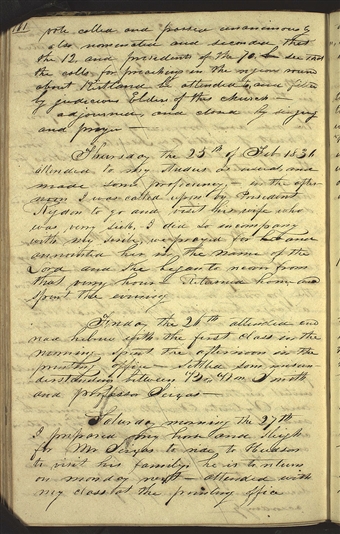 161
vote called and passed unanimously
also nominated and seconded that
the 12. and presidents of the 70. see that
the calls for preaching in the region round
about Kirtland be attended to, and filled
by judicious Elders of this church —
adjourned, and closed by singing
and prayer —
Thursday the 25th of Feb 1836
attended to my studies as usual, and
made some proficiency — in the after-
noon I was called upon by President
Rigdon to go and visit his wife who
was very sick, I did so in company
with my scribe, we prayed for and
annointed her in the name of the
Lord and she began to recover from
that very hour — Returned home and
spent the evening
Friday the 26th attended and
read hebrew with the first class in the
morning spent the afternoon in the
printing office — Settled some misun-
derstanding between Wm Smith
and professor Seixas —
Saturday morning the 27th
I prepared my horse and sleigh
for Mr. Seixas to ride to Hudson
to visit his family, he is to return
on monday next — attended with
my class at the printing office